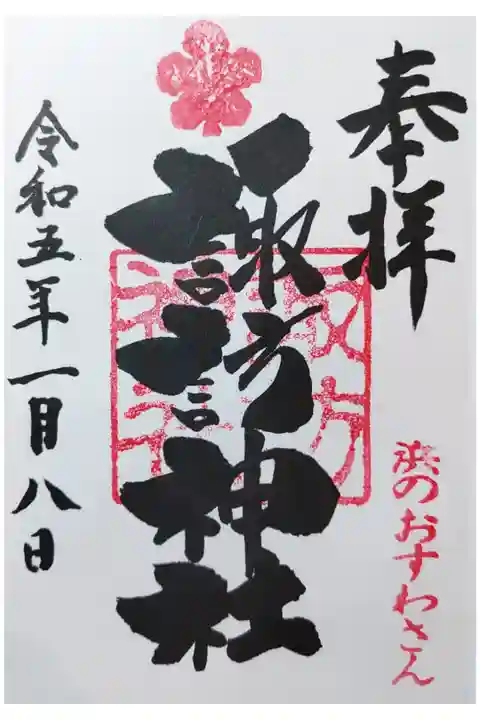 奉拝
浜のおすわさん
諏訪神社
令和五年一月八日